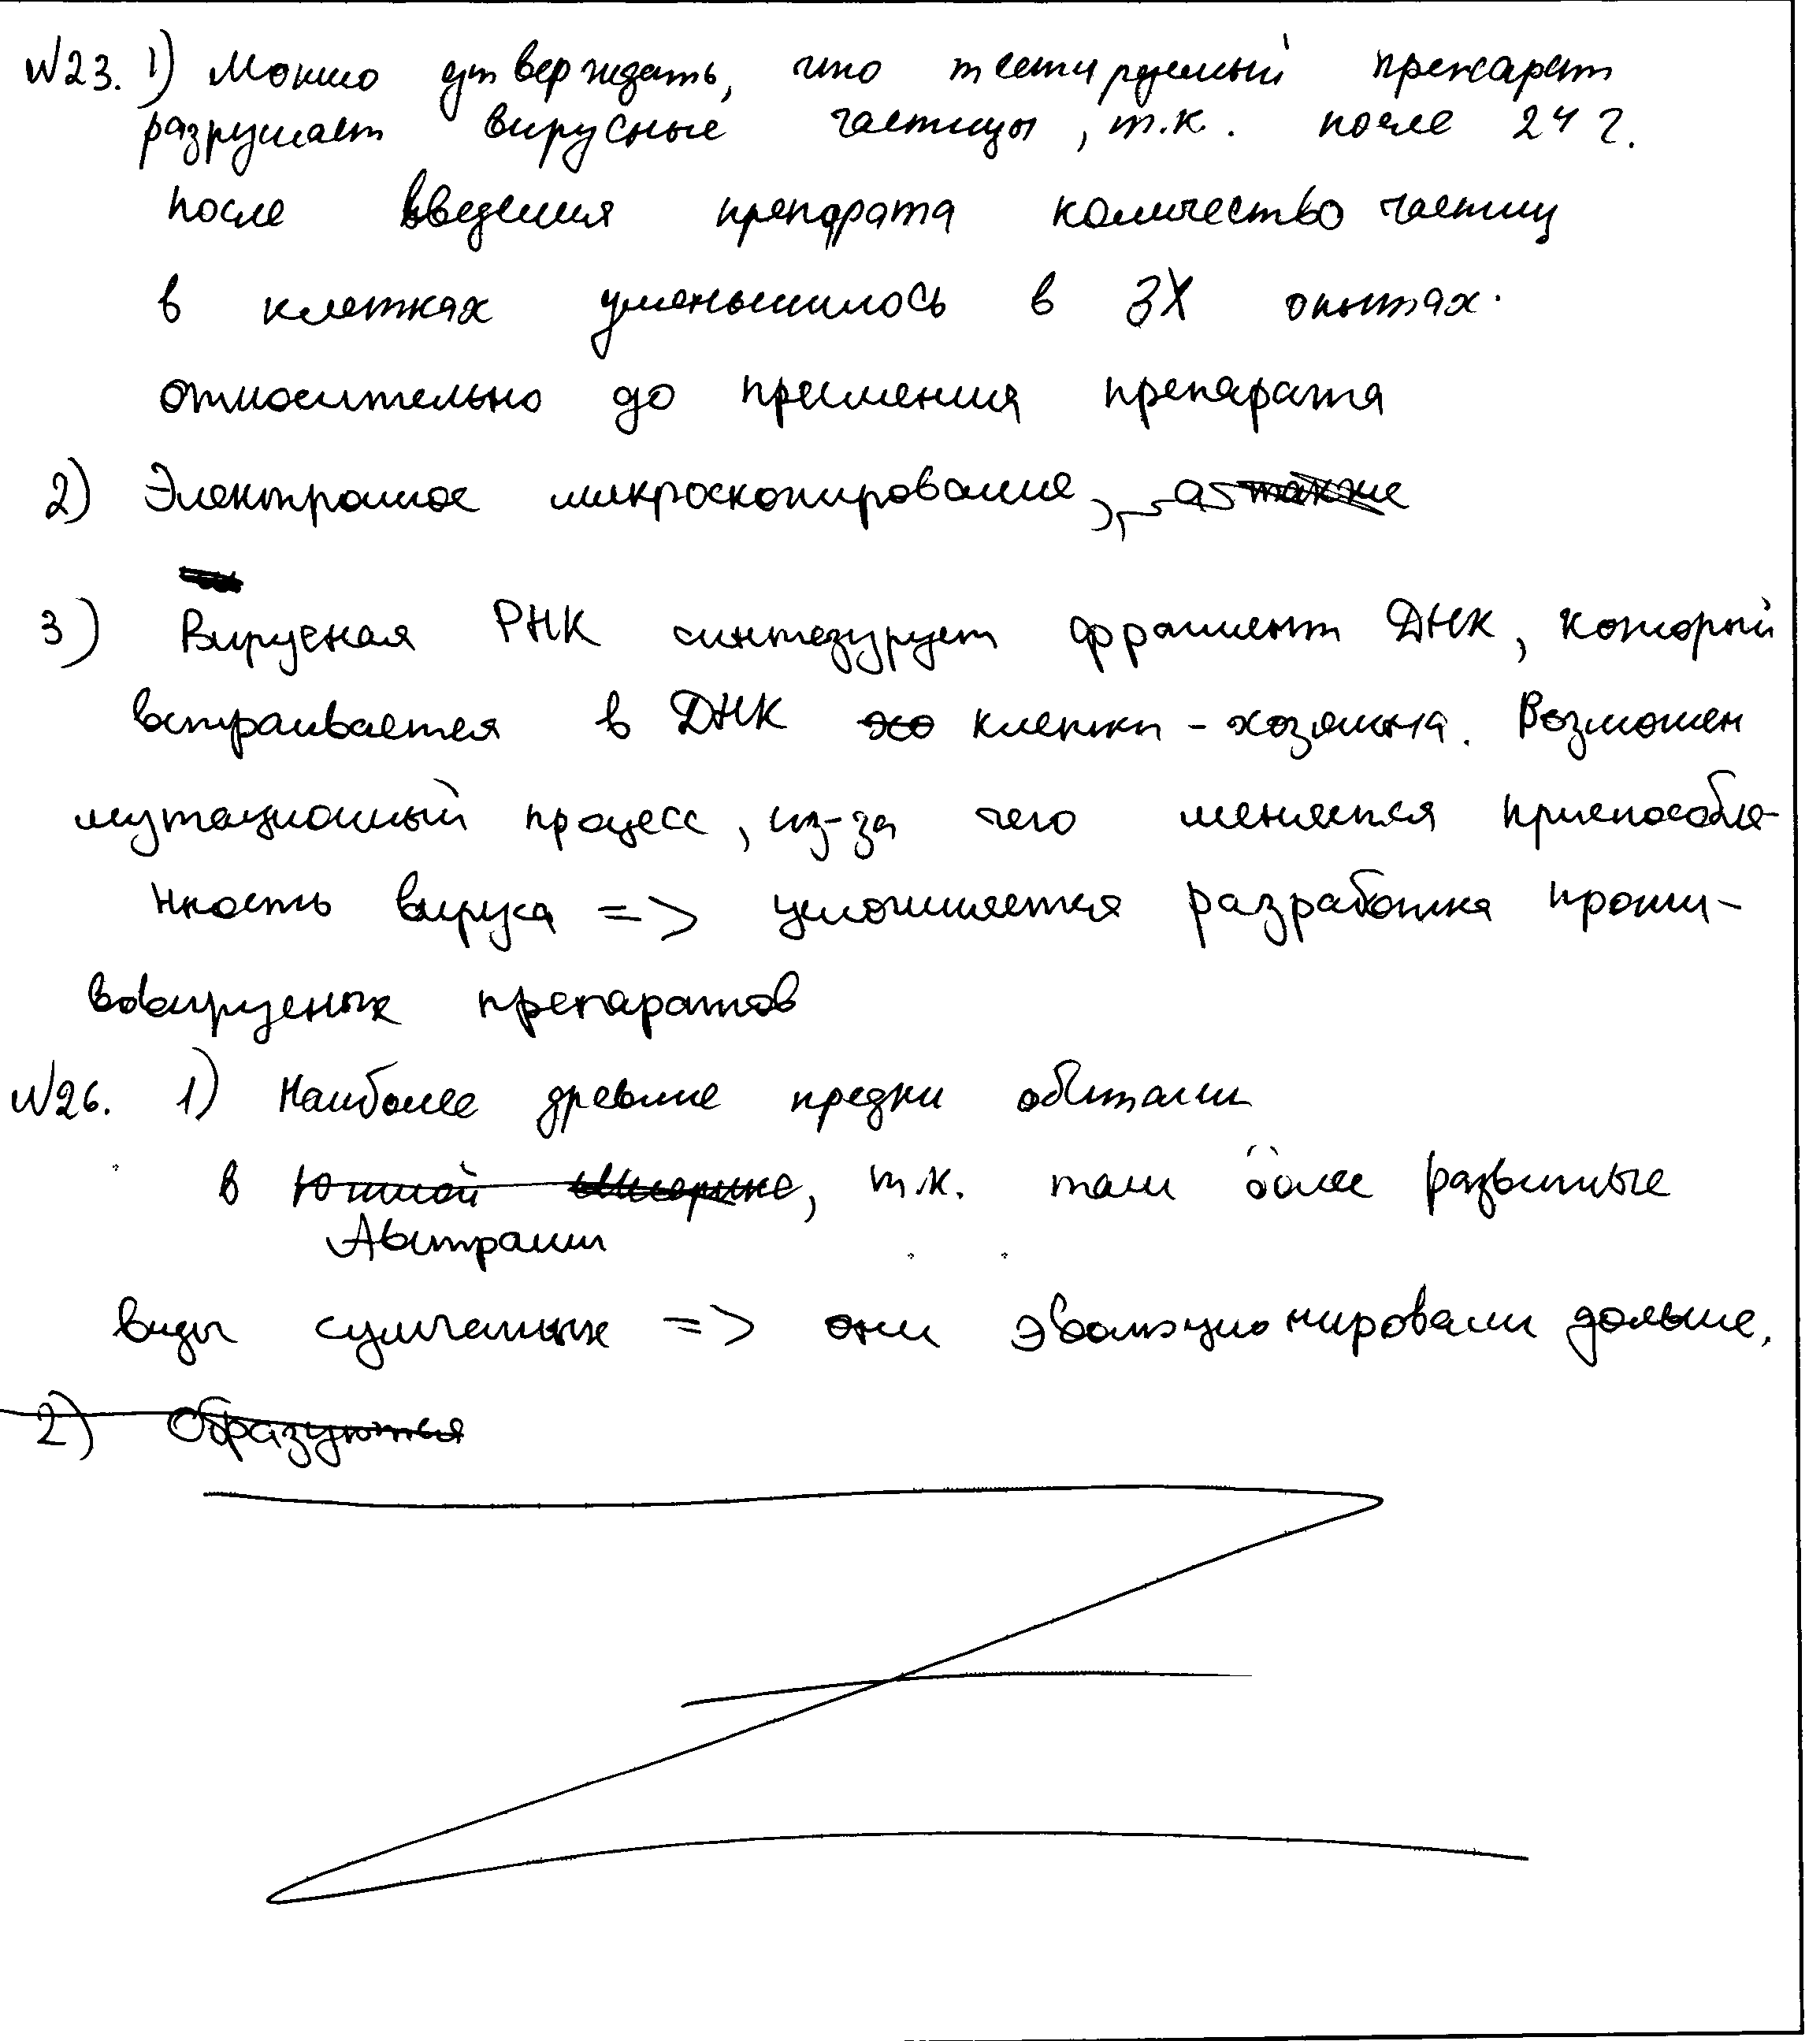 №23. 1) Можно утверждать, что тестируемый препарат
разрушает вирусные частицы, т.к. после 24 г.
после введения препарата количество частиц
в клетках уменьшилось в 3Х опытах.
относительно до применения препарата
2) Электронное микроскопирование, а также
3) Вирусная РНК синтезирует фрагмент ДНК, который
встраивается в ДНК хо клетки-хозяина. Возможен
мутационный процесс, из-за чего меняется приспособле-
нность вируса => усложняется разработка проти-
вовирусных препаратов
№26. 1) Наиболее древние предки обитали
в Южной Америке, т.к. там более развитые
Австралии
виды сумчатых => они эволюционировали дольше.
2) Образуются